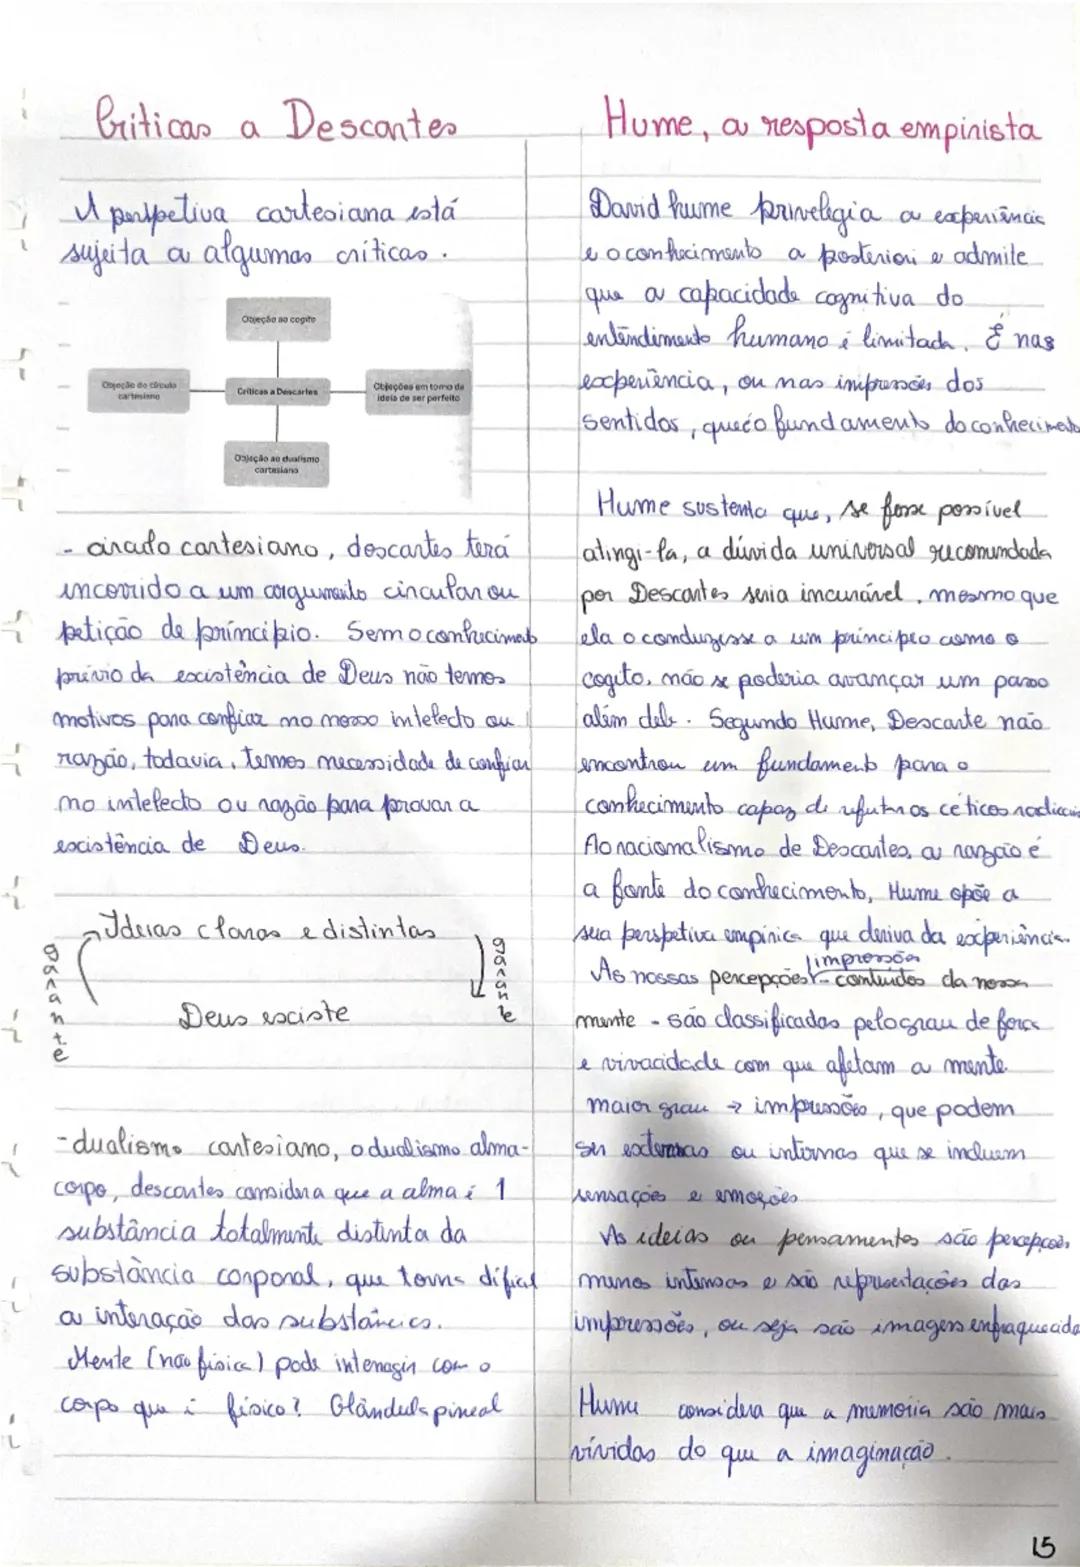 Criticas a Descartes
A perspetiva cartesiana está
sujeita a algumas críticas.
Objeção ao cogito
Objeção do círculo
cartesiano
Críticas a Descartes
Objeções em torno da
ideia de ser perfeito
Objeção ao dualismo
cartesiano
- círculo cartesiano, descartes terá
incorrido a um argumento circular ou
petição de príncipio. Sem o conhecimento
prévio da existência de Deus não temos
motivos para confiar no nosso intelecto ou
razão, todavia, temos necessidade de confiar
no intelecto ou razão para provar a
existência de Deus.
Ideias claras e distintas
garante
garante
Deus existe
- dualismo cartesiano, o dualismo alma-
corpo, descartes considera que a alma é 1
substância totalmente distinta da
substância corporal, que torna difícil
a interação das substâncias.
Mente (não física) pode interagir com o
corpo que é físico? Glândula pineal
Hume, a resposta empirista
David hume privelegia a experiência
e o conhecimento a posteriori e admite
que a capacidade cognitiva do
entendimento humano é limitada. É nas
experiência, ou nas impressões dos
sentidos, que é o fundamento do conhecimento
Hume sustenta que, se fosse possível
atingi-la, a dúvida universal recomendada
por Descartes seria incurável, mesmo que
ela o conduzisse a um princípio como o
cogito, não se poderia avançar um passo
além dele. Segundo Hume, Descarte não
encontrou um fundamento para o
conhecimento capaz de refutar os céticos radicais
Ao racionalismo de Descartes, a razão é
a fonte do conhecimento, Hume opõe a
sua perspetiva empírica que deriva da experiência.
impressões
As nossas percepções - conteúdos da nossa
mente - são classificadas pelo grau de força
e vivacidade com que afetam a mente.
maior grau → impressões, que podem
ser externas ou internas que se incluem
sensações e emoções
As ideias ou pensamentos são percepções
menos intensas e são representações das
impressões, ou seja são imagens enfraquecida
Hume considera que a memória são mais
vívidas do que a imaginação.
15